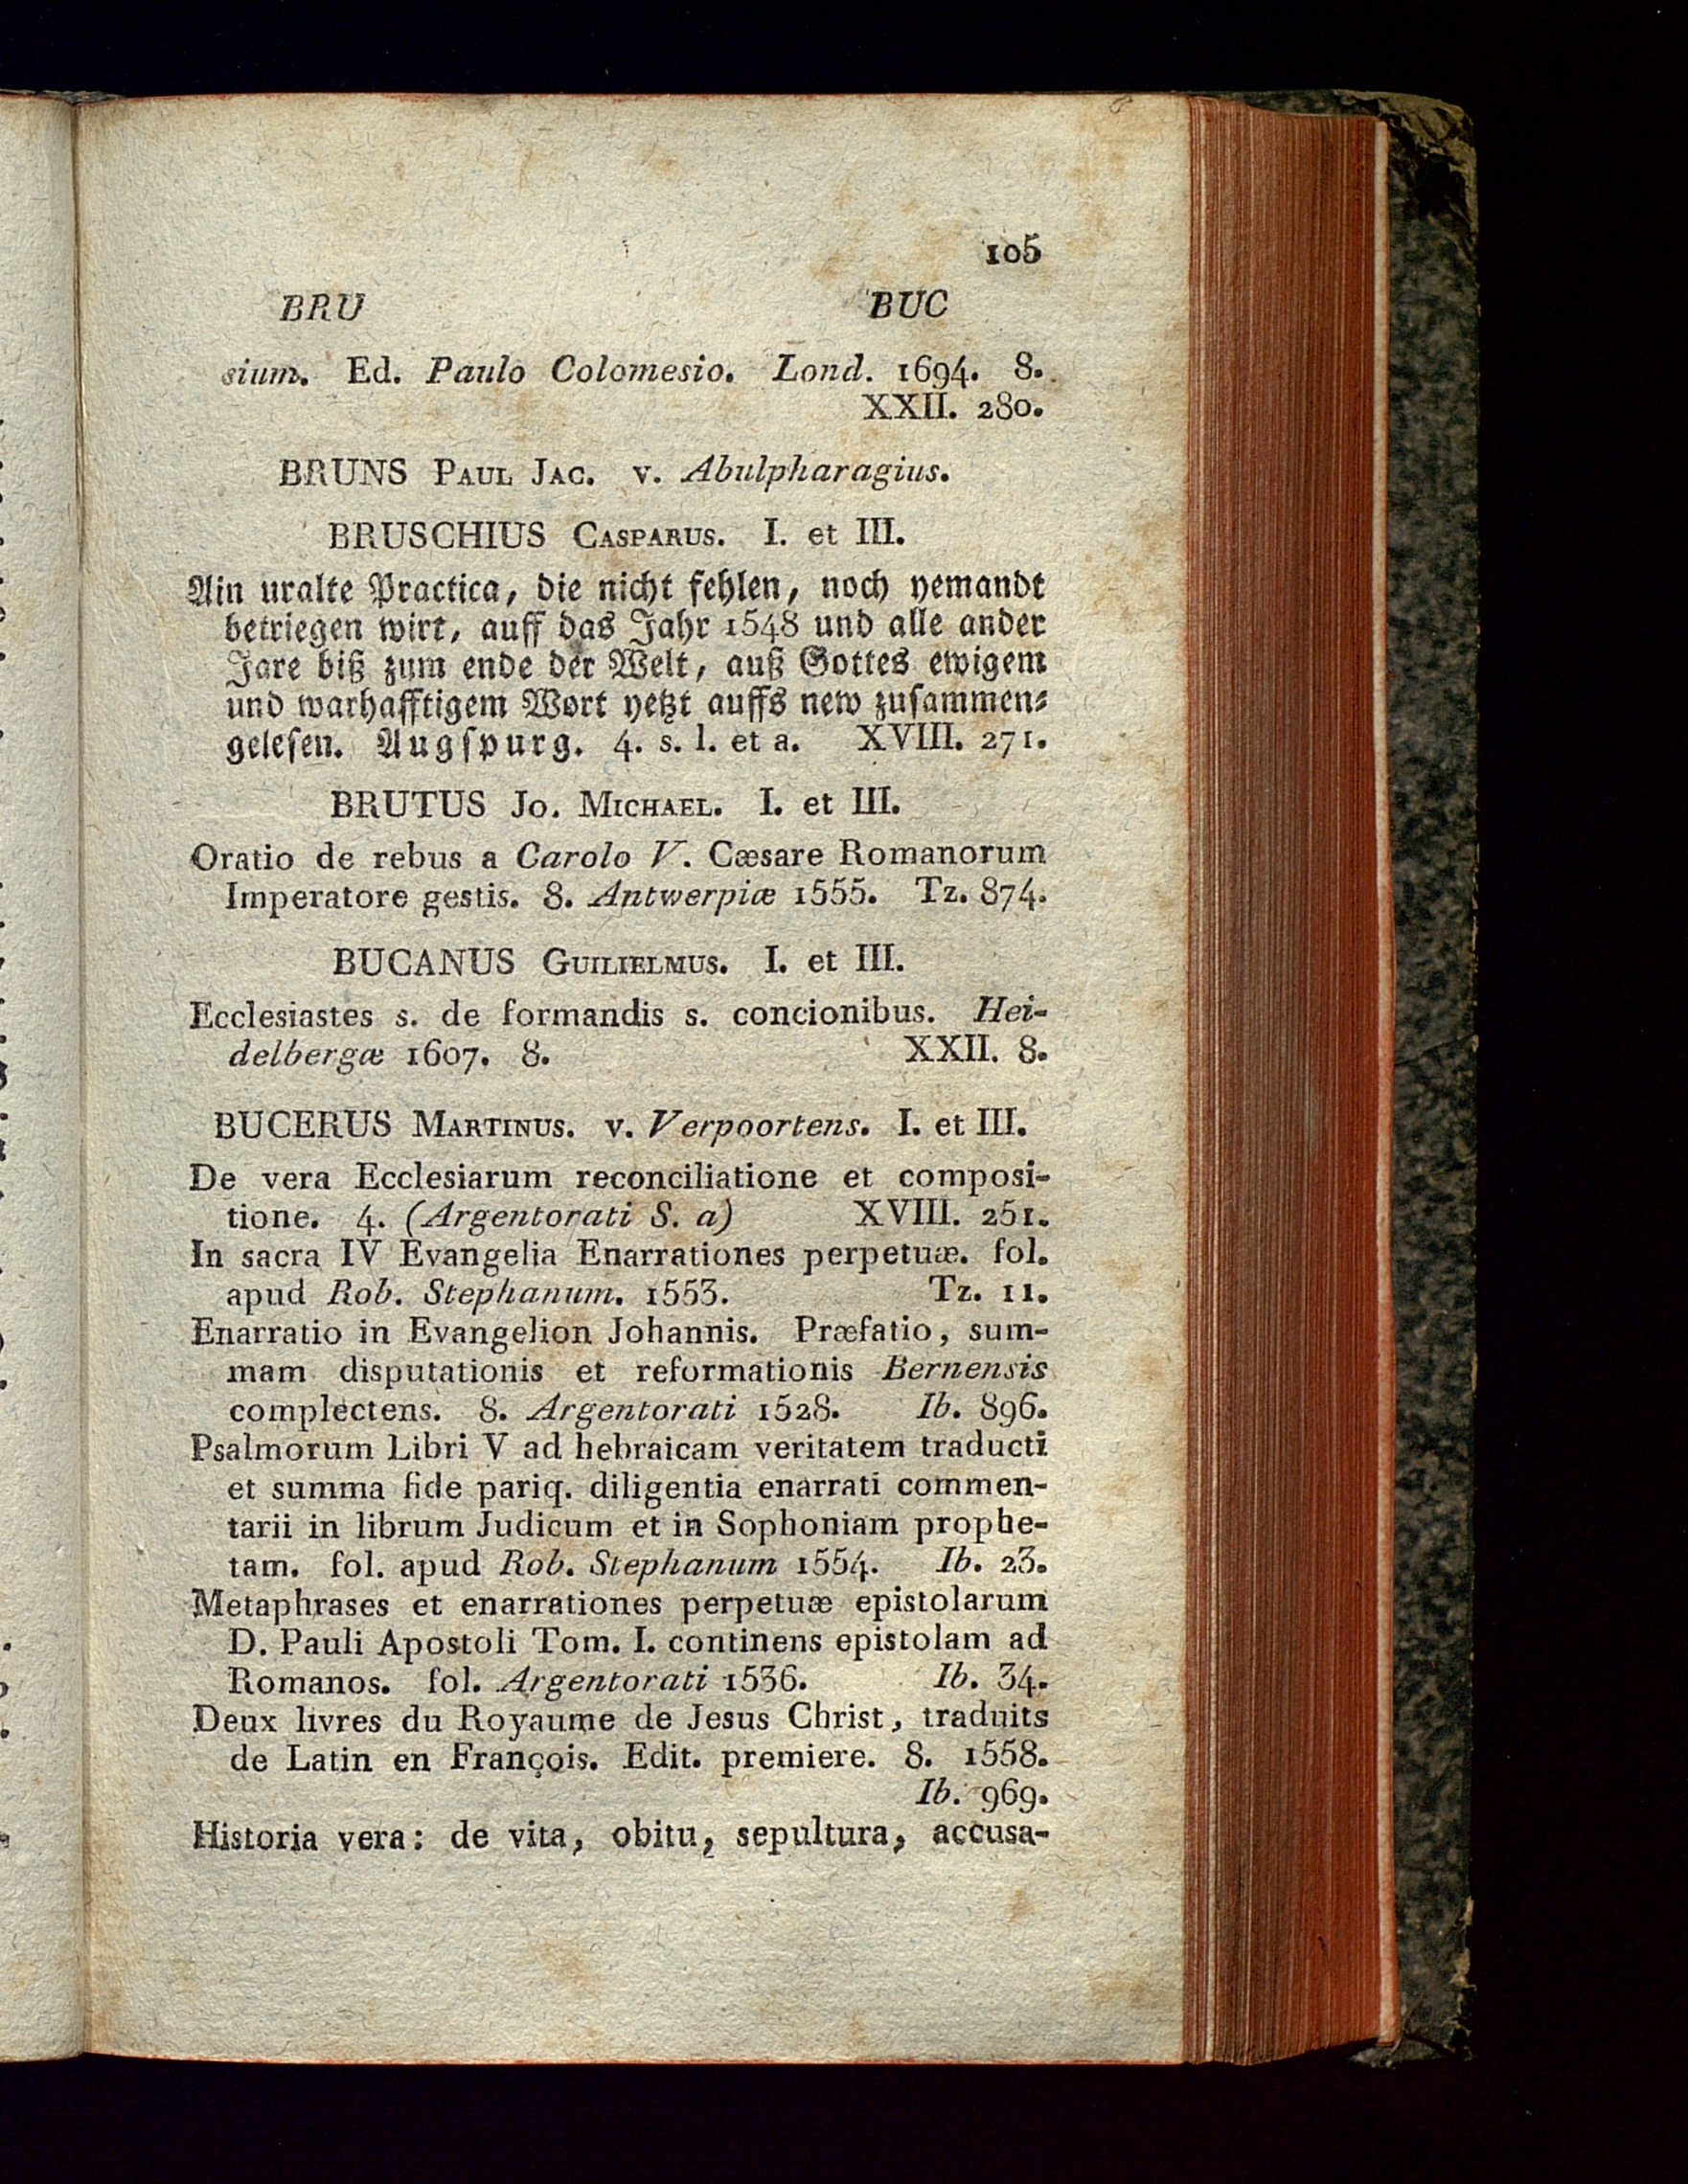 105
BRU BUC
sium. Ed. Paulo Colomesio. Lond. 1694. 8.
XXII. 280.
BRUNS PAUL JAC. v. Abulpharagius.
BRUSCHIUS CASPARUS. I. et III.
Ain uralte Practica, die nicht fehlen, noch yemandt
betriegen wirt, auff das Jahr 1548 und alle ander
Jare biß zum ende der Welt, auß Gottes ewigem
und warhafftigem Wort yetzt auffs new zusammen-
gelesen. Augspurg. 4. s. l. et a. XVIII. 271.
BRUTUS JO. MICHAEL. I. et III.
Oratio de rebus a Carolo V. Cæsare Romanorum
Imperatore gestis. 8. Antwerpiæ 1555. Tz. 874.
BUCANUS GUILIELMUS. I. et III.
Ecclesiastes s. de formandis s. concionibus. Hei-
delbergæ 1607. 8. XXII. 8.
BUCERUS MARTINUS. v. Verpoortens. I. et III.
De vera Ecclesiarum reconciliatione et composi-
tione. 4. (Argentorati S. a) XVIII. 251.
In sacra IV Evangelia Enarrationes perpetuæ. fol.
apud Rob. Stephanum. 1553. Tz. 11.
Enarratio in Evangelion Johannis. Præfatio, sum-
mam disputationis et reformationis Bernensis
complectens. 8. Argentorati 1528. Ib. 896.
Psalmorum Libri V ad hebraicam veritatem traducti
et summa fide pariq. diligentia enarrati commen-
tarii in librum Judicum et in Sophoniam prophe-
tam. fol. apud Rob. Stephanum 1554. Ib. 23.
Metaphrases et enarrationes perpetuæ epistolarum
D. Pauli Apostoli Tom. I. continens epistolam ad
Romanos. fol. Argentorati 1536. Ib. 34.
Deux livres du Royaume de Jesus Christ, traduits
de Latin en François. Edit. premiere. 8. 1558.
Ib. 969.
Historia vera: de vita, obitu, sepultura, accusa-